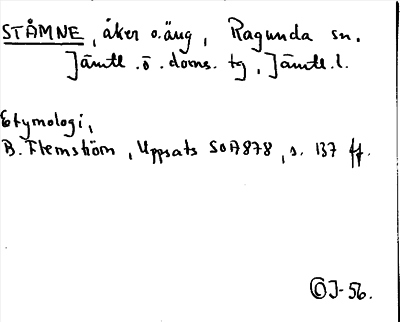 STÅMNE, åker o. äng, Ragunda sn.
Jämtl. ö. doms. tg, Jämtl. l.
Etymologi,
B. Flemström, Uppsats SOA878, s. 137 ff.
OJ-56.